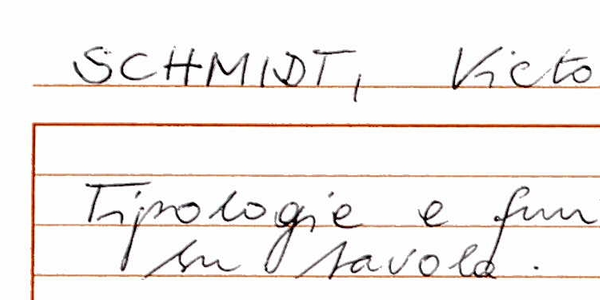 SCHMIDT, Victo
Tipologie e fun
su tavola.